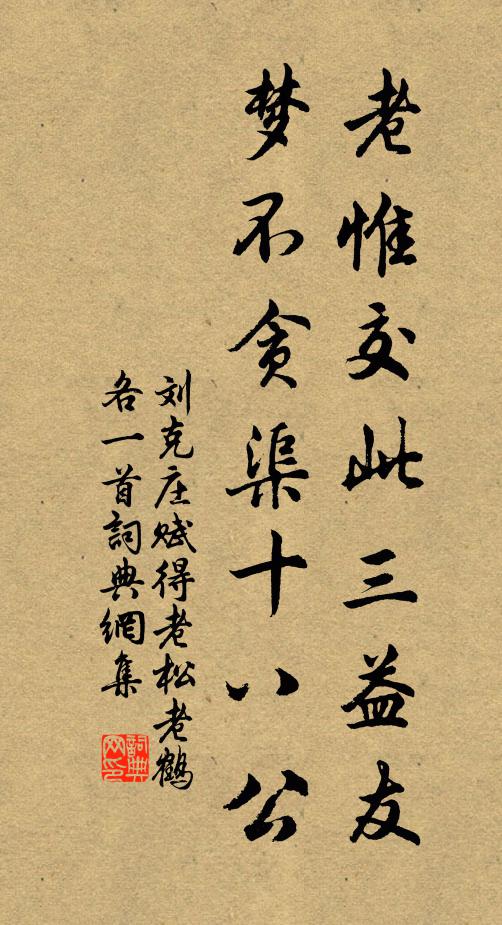 老惟交此三益友
梦不贪渠十八公
刘克庄赋得老松老鹤
各一首詞典網集
詞典网印